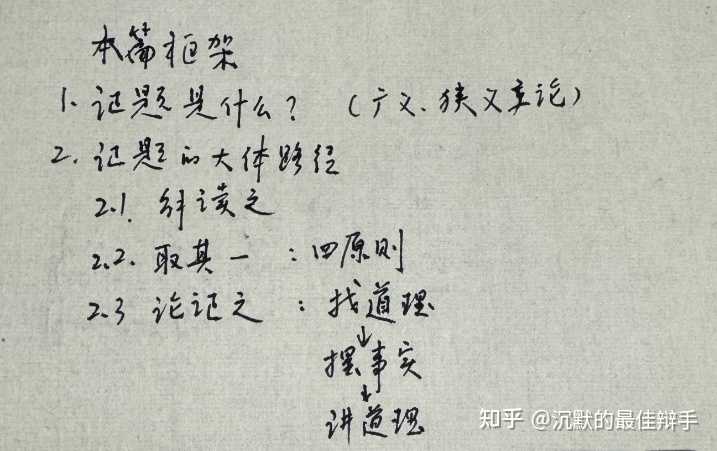 本篇框架
1. 证题是什么？（广义、狭义立论）
2. 证题的大体路径
2.1. 解读之
2.2. 取其一：四原则
2.3 论证之：找道理
↓
摆事实
↓
讲道理
知乎 @沉默的最佳辩手